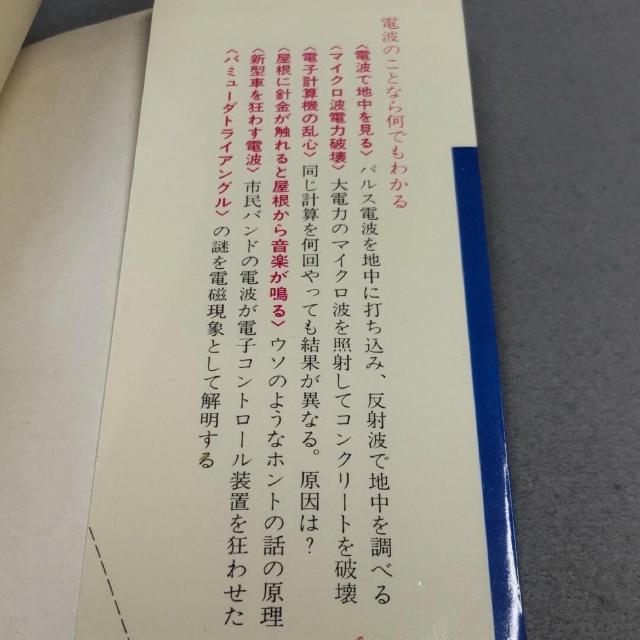 電波のことなら何でもわかる
〈電波で地中を見る〉パルス電波を地中に打ち込み、反射波で地中を調べる
〈マイクロ波電力破壊〉大電力のマイクロ波を照射してコンクリートを破壊
〈電子計算機の乱心〉同じ計算を何回やっても結果が異なる。原因は?
〈屋根に針金が触れると屋根から音楽が鳴る〉ウソのようなホントの話の原理
〈新型車を狂わす電波〉市民バンドの電波が電子コントロール装置を狂わせた
〈バミューダトライアングル〉の謎を電磁現象として解明する